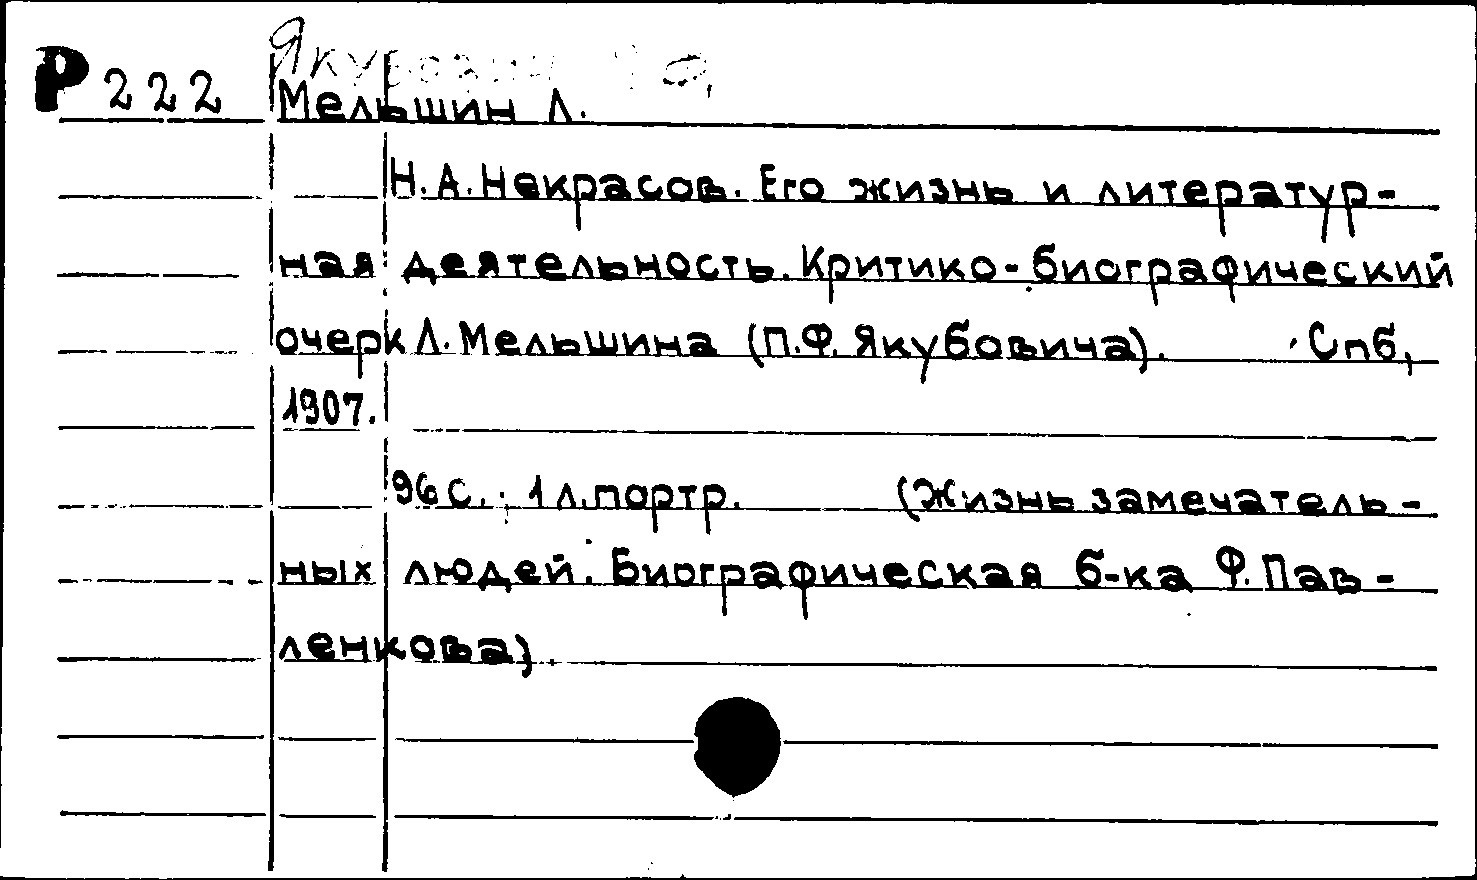 Якубович П Ф,
Р 222 Мельшин Л.
Н.А.Некрасов. Его жизнь и литератур-
ная деятельность. Критико-биографический
очерк Л. Мельшина (П.Ф. Якубовича). Спб,
1907.
96 с.; 1 л.портр. (Жизнь замечатель-
ных людей. Биографическая б-ка Ф. Пав-
ленкова).